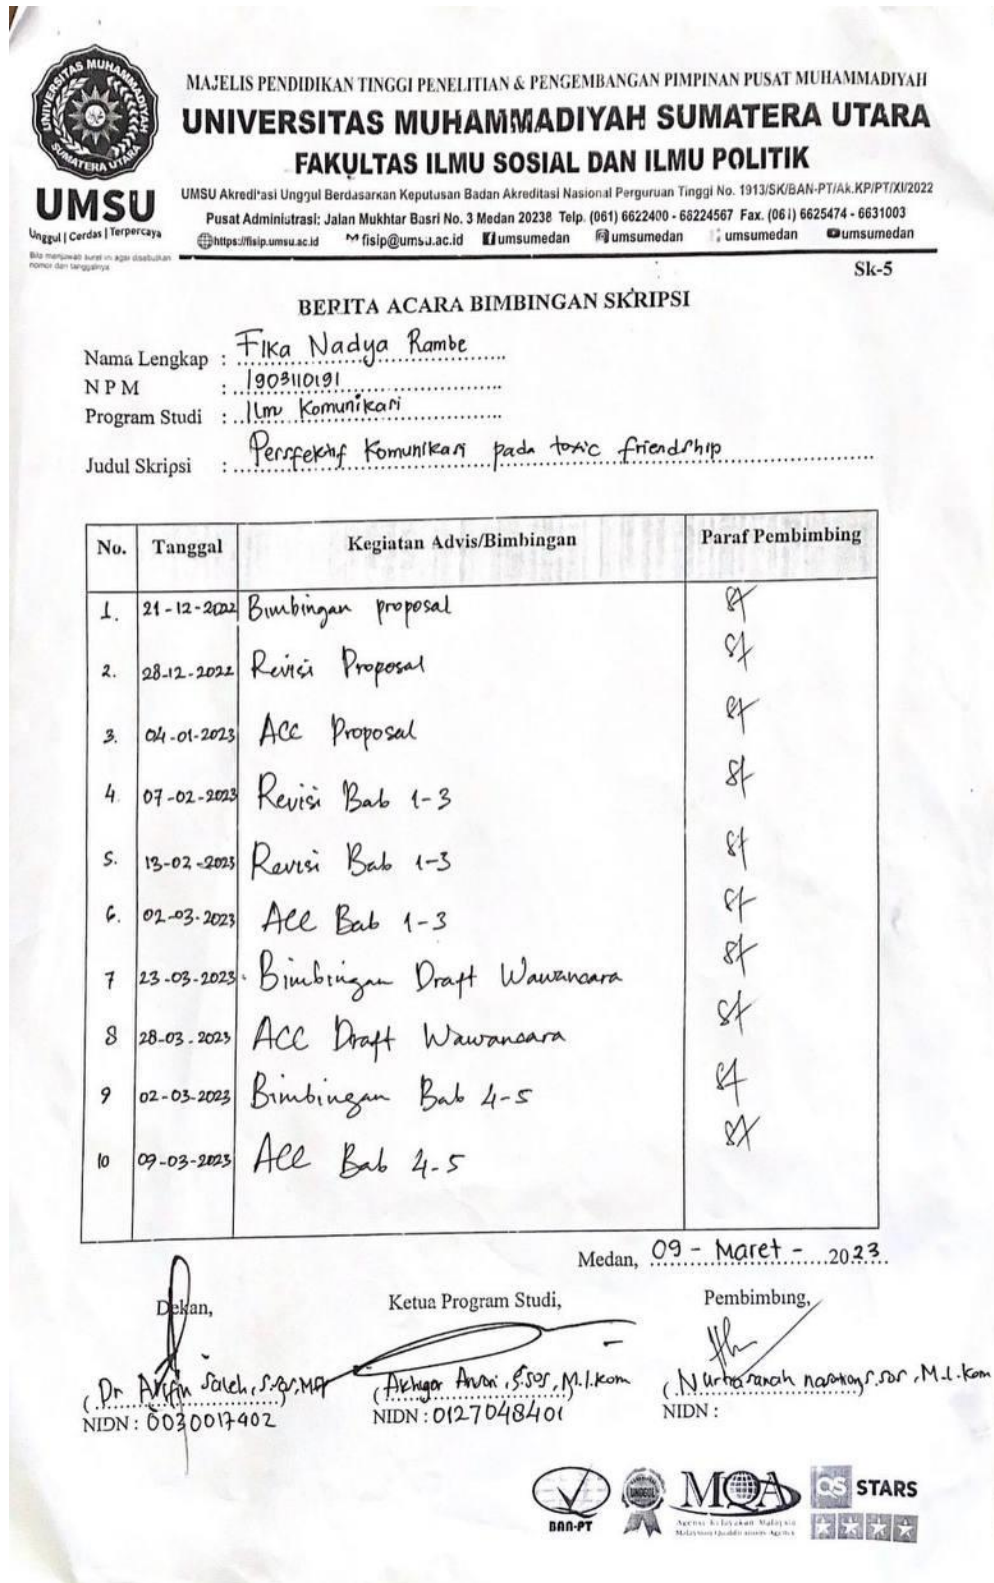 UNIVERSITAS MUHAMMADIYAH
SUMATERA UTARA
UMSU
Unggul | Cerdas | Terpercaya
Bila menjawab surat ini agar disebutkan
nomor dan tanggalnya
MAJELIS PENDIDIKAN TINGGI PENELITIAN & PENGEMBANGAN PIMPINAN PUSAT MUHAMMADIYAH
UNIVERSITAS MUHAMMADIYAH SUMATERA UTARA
FAKULTAS ILMU SOSIAL DAN ILMU POLITIK
UMSU Akreditasi Unggul Berdasarkan Keputusan Badan Akreditasi Nasional Perguruan Tinggi No. 1913/SK/BAN-PT/Ak.KP/PT/XI/2022
Pusat Administrasi: Jalan Mukhtar Basri No. 3 Medan 20238 Telp. (061) 6622400 - 66224567 Fax. (061) 6625474 - 6631003
https://fisip.umsu.ac.id fisip@umsu.ac.id umsumedan umsumedan umsumedan umsumedan
Sk-5
BERITA ACARA BIMBINGAN SKRIPSI
Nama Lengkap : Fika Nadya Rambe
N P M : 1903110191
Program Studi : Ilmu Komunikasi
Judul Skripsi : Persfektif Komunikasi pada toxic friendship
No. Tanggal Kegiatan Advis/Bimbingan Paraf Pembimbing
1. 21-12-2022 Bimbingan proposal
2. 28-12-2022 Revisi Proposal
3. 04-01-2023 ACC Proposal
4. 07-02-2023 Revisi Bab 1-3
5. 13-02-2023 Revisi Bab 1-3
6. 02-03-2023 Acc Bab 1-3
7 23-03-2023 Bimbingan Draft Wawancara
8 28-03-2023 ACC Draft Wawancara
9 02-03-2023 Bimbingan Bab 4-5
10 09-03-2023 Acc Bab 4-5
Medan, 09 - Maret - 2023
Dekan, Ketua Program Studi, Pembimbing,
(Dr Arifin Saleh, S.Sos, MSP) (Akhyar Anshori, S.Sos, M.I.Kom (Nurhasanah nasution, S.sos, M.I.Kom
NIDN : 0030017402 NIDN : 0127048401 NIDN :
BAN-PT UNGGUL MQA QS STARS
Agensi Kelayakan Malaysia
Malaysian Qualifications Agency